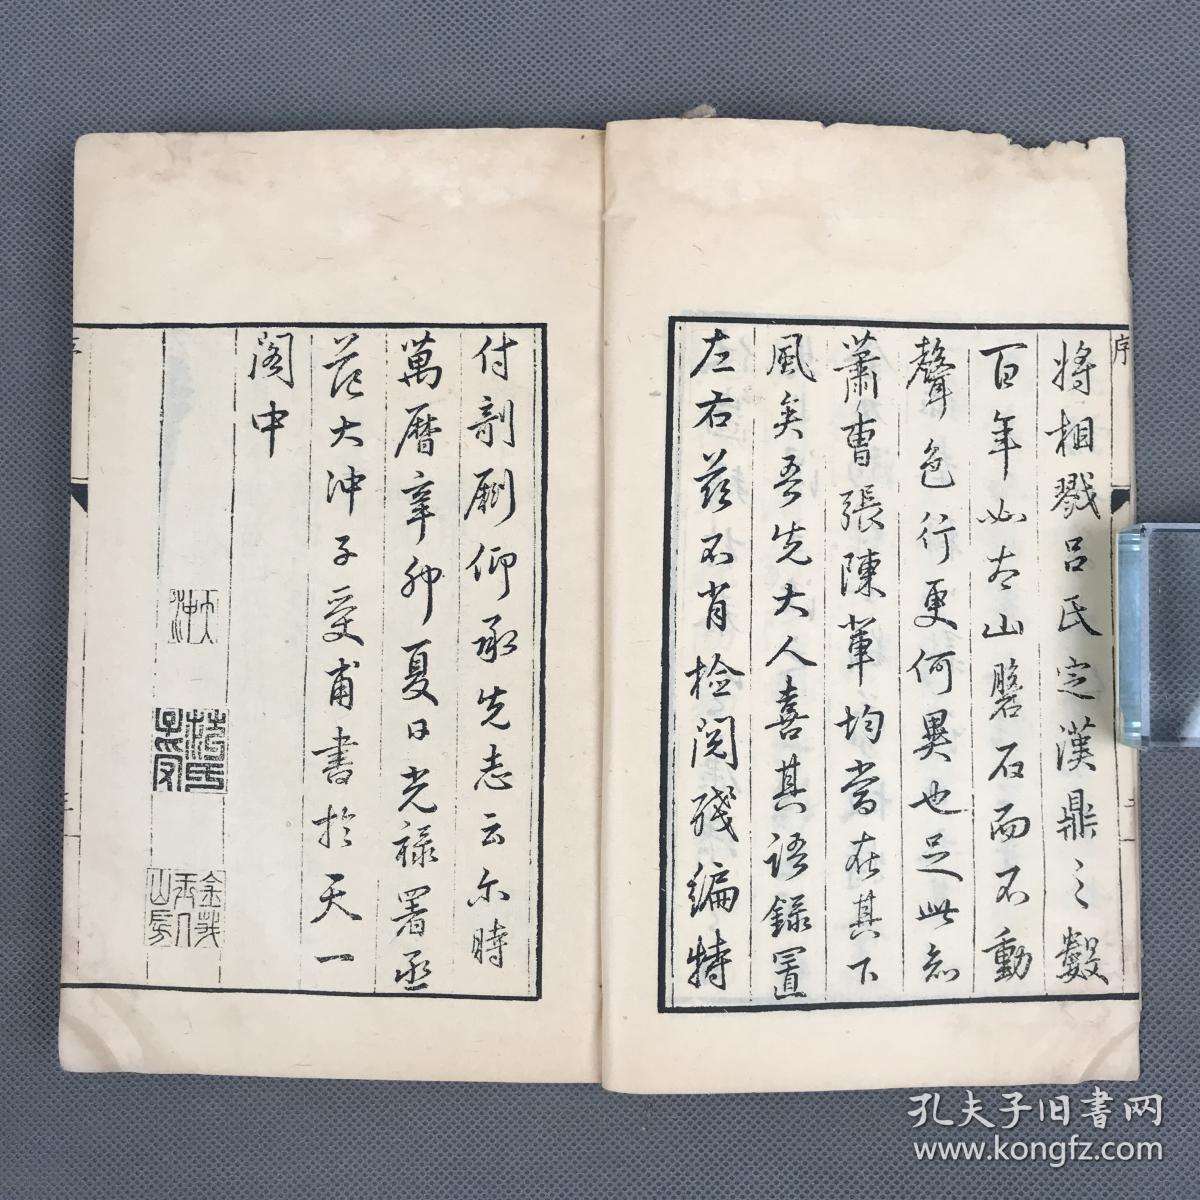 序
將相戮呂氏定漢鼎之數
百年如太山磐石而不動
聲色行更何異也足此知
蕭曹張陳輩均當在其下
風矣吾先大人喜其語錄置
左右茲不肖檢閱殘編特
付剞劂仰承先志云尔時
萬曆辛卯夏日光祿署丞
范大沖子受甫書於天一
閣中
大沖
范氏子受
金莪山房
孔夫子旧书网
www.kongfz.com